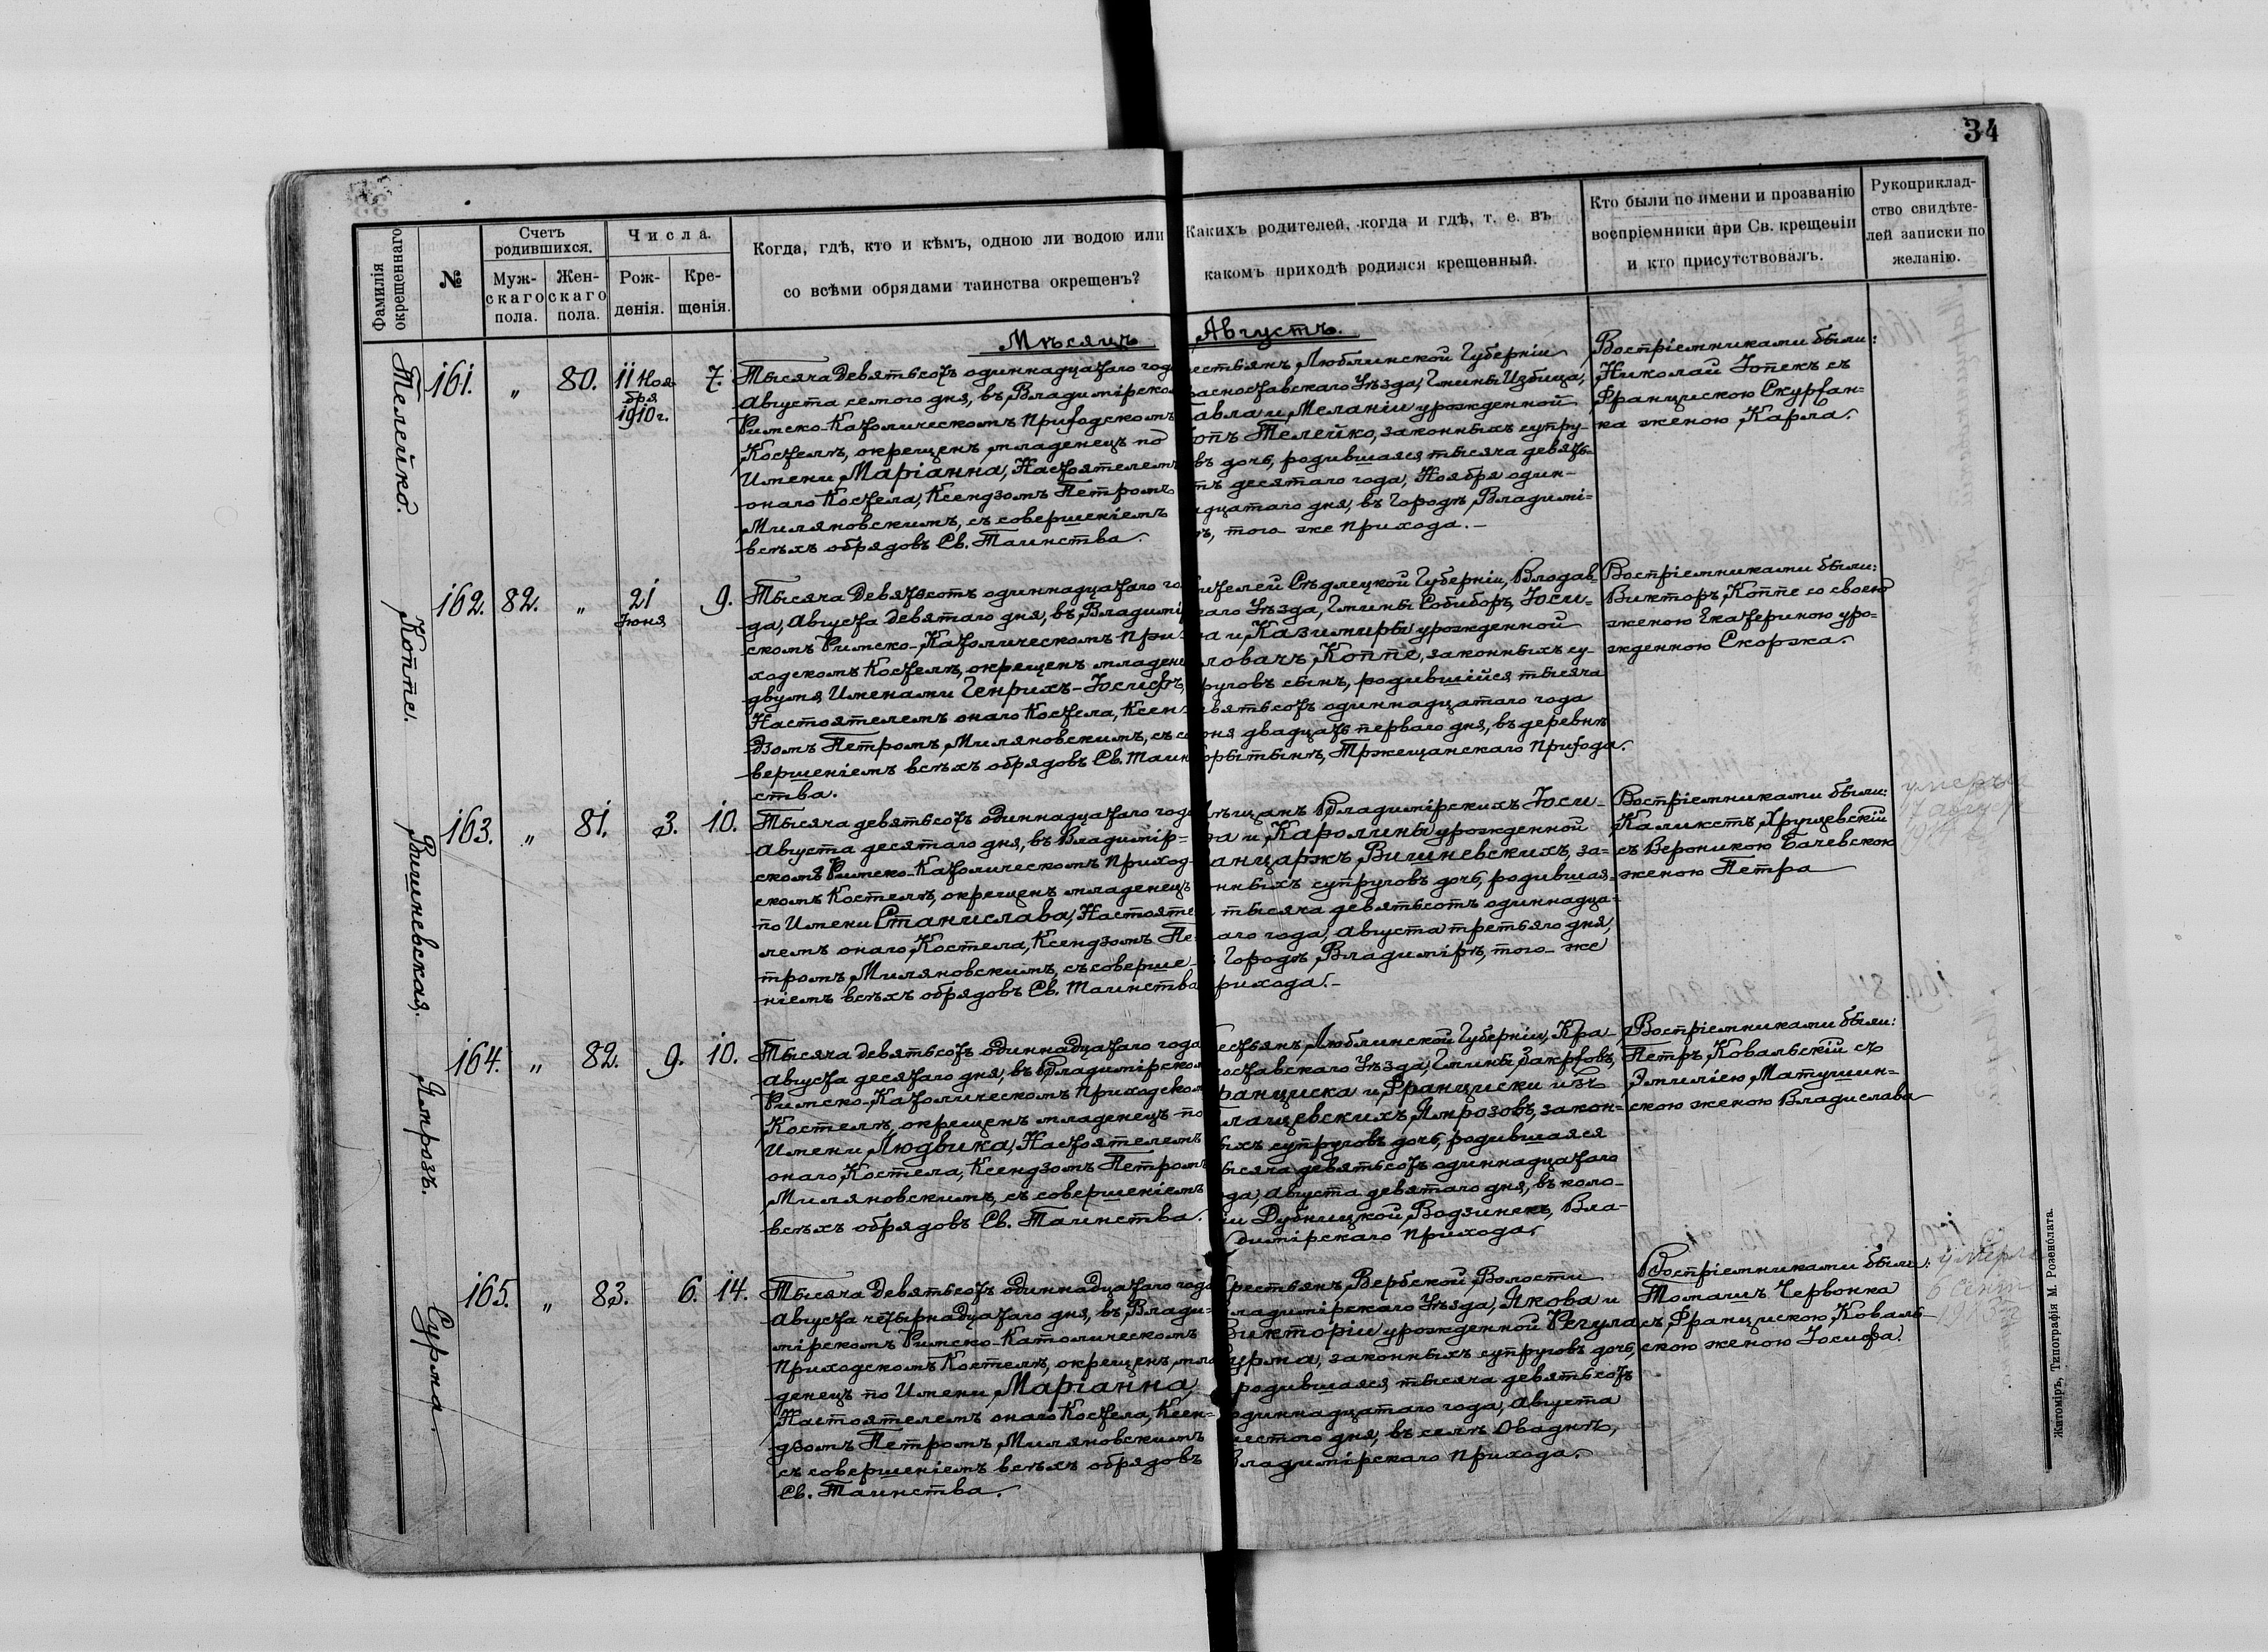 34
Фамилія окрещеннаго
№
Счетъ родившихся.
Мужскаго пола.
Женскаго пола.
Числа.
Рожденія.
Крещенія.
Когда, гдѣ, кто и кѣмъ, одною ли водою или
со всѣми обрядами таинства окрещенъ?
Какихъ родителей, когда и гдѣ, т. е. въ
какомъ приходѣ родился крещенный.
Кто были по имени и прозванію
воспріемники при Св. крещеніи
и кто присутствовалъ.
Рукоприклад-
ство свидѣте-
лей записки по
желанію.
Мѣсяцъ Августъ.
Телейко.
161. " 80. 11 Ноя
бря
1910 г.
7.
Тысяча девятьсотъ одиннадцатаго год
Августа семого дня, въ Владимірско
Римско-Католическомъ Приходскомъ
Костелѣ, окрещенъ младенецъ по
Имени Маріанна, Настоятелемъ
онаго Костела, Ксендзомъ Петромъ
Миляновскимъ, съ совершеніемъ
всѣхъ обрядовъ Св. Таинства.
естьянъ Люблинской Губерніи
расноставскаго Уѣзда, Гмины Избица,
авла и Меланіи урожденной
опъ Телейко, законныхъ супру-
въ дочь, родившаяся тысяча девять=
тъ десятаго года, Ноября один-
дцатаго дня, въ Городѣ Владимі=
ѣ, того же Прихода.-
Воспріемниками были:
Николай Зотекъ съ
Францискою Скурган-
ка женою Карла.
Коппе.
162. 82. " 21
Іюня
9.
Тысяча девятьсотъ одиннадцатаго го
да, Августа девятаго дня, въ Владимір
скомъ Римско-Католическомъ При
ходскомъ Костелѣ, окрещенъ младене
двумя Именами Генрихъ-Іосифъ,
Настоятелемъ онаго Костела, Ксен
дзомъ Петромъ Миляновскимъ, съ со
вершеніемъ всѣхъ обрядовъ Св. Таин
ства.
ителей Сѣдлецкой Губерніи, Влодав-
скаго Уѣзда, Гмины Собиборъ, Іоси-
фа и Казимиры урожденной
ловачъ Коппе, законныхъ су-
руговъ сынъ, родившійся тысяча
евятьсотъ одиннадцатаго года
юня двадцать перваго дня, въ деревнѣ
орытынѣ, Тржещанскаго Прихода.
Воспріемниками были:
Викторъ Коппе со своею
женою Екатериною уро=
жденною Скоржа.
Вишневская.
163. " 81. 3. 10.
Тысяча девятьсотъ одиннадцатаго год
Августа десятаго дня, въ Владимір=
скомъ Римско-Католическомъ Приход-
скомъ Костелѣ, окрещенъ младенецъ
по Имени Станислава, Настояте
лемъ онаго Костела, Ксендзомъ Пе-
тромъ Миляновскимъ, съ соверше-
ніемъ всѣхъ обрядовъ Св. Таинства
ѣщанъ Владимірскихъ Іоси-
фа и Каролины урожденной
анцаржъ Вишневскихъ, за=
онныхъ супруговъ дочь, родившая=
тысяча девятьсотъ одиннадца=
аго года, Августа третьяго дня,
Городѣ Владимірѣ, того-же
рихода.-
Воспріемниками были:
Каликстъ Хрущевскій
съ Вероникою Бачевскою
женою Петра
умерла
17 август
Ямрозъ.
164. " 82. 9. 10.
Тысяча девятьсотъ одиннадцатаго года
Августа десятаго дня, въ Владимірском
Римско-Католическомъ Приходском
Костелѣ, окрещенъ младенецъ по
Имени Людвика, Настоятелемъ
онаго Костела, Ксендзомъ Петромъ
Миляновскимъ, съ совершеніемъ
всѣхъ обрядовъ Св. Таинства.
естьянъ Люблинской Губерніи, Кра-
ноставскаго Уѣзда, Гмины Закржовъ,
ранциска и Франциски изъ
лащевскихъ Ямрозовъ, закон=
ыхъ супруговъ дочь, родившаяся
ысяча девятьсотъ одиннадцатаго
ода, Августа девятаго дня, въ коло-
іи Дубницкой Водзинекъ, Вла-
димірскаго Прихода.
Воспріемниками были:
Петръ Ковальскій съ
Эмиліею Матушин-
скою женою Владислава
Сурма.
165. " 83. 6. 14.
Тысяча девятьсотъ одиннадцатаго года
Августа четырнадцатаго дня, въ Влади=
мірскомъ Римско-Католическомъ
Приходскомъ Костелѣ, окрещенъ мла
денецъ по Имени Маріанна,
Настоятелемъ онаго Костела, Ксен=
дзомъ Петромъ Миляновскимъ
съ совершеніемъ всѣхъ обрядовъ
Св. Таинства.
Крестьянъ Вербской Волости
Владимірскаго Уѣзда, Якова и
Викторіи урожденной Регула
Сурма, законныхъ супруговъ дочь,
родившаяся тысяча девятьсотъ
одиннадцатаго года, Августа
шестого дня, въ селѣ Оваднѣ,
Владимірскаго Прихода.
Воспріемниками были:
Томашъ Червонка
съ Францискою Коваль-
скою женою Іосифа.
умерла
6 сент
Житоміръ, Типографія М. Розенблата.